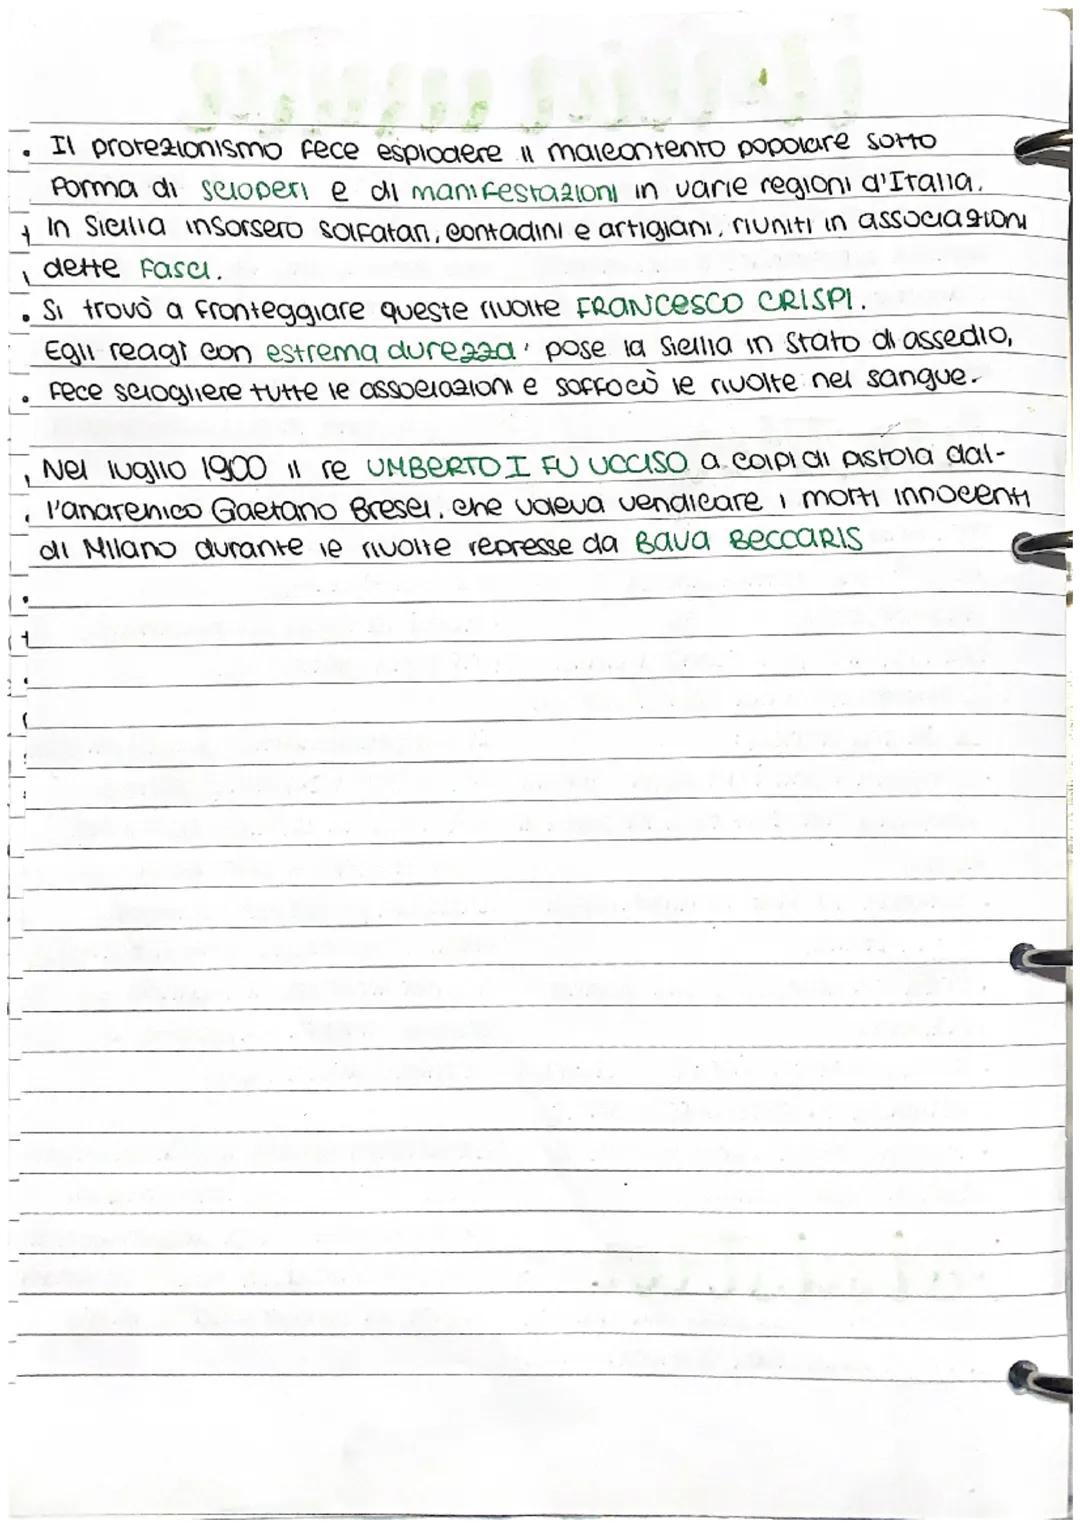 Il protezionismo fece esplodere il malcontento popolare sotto
forma di scioperi e di manifestazioni in varie regioni d'Italia.
In Sicilia insorsero solfatari, contadini e artigiani, riuniti in associazioni
dette Fasci.
Si trovò a fronteggiare queste rivolte FRANCESCO CRISPI.
Egli reagì con estrema durezza: pose la Sicilia in stato di assedio,
fece sciogliere tutte le associazioni e soffocò le rivolte nel sangue.
Nel luglio 1900 il re UMBERTO I FU UCCISO a colpi di pistola dal-
l'anarchico Gaetano Bresci, che voleva vendicare i morti innocenti
di Milano durante le rivolte represse da BAVA BECCARIS